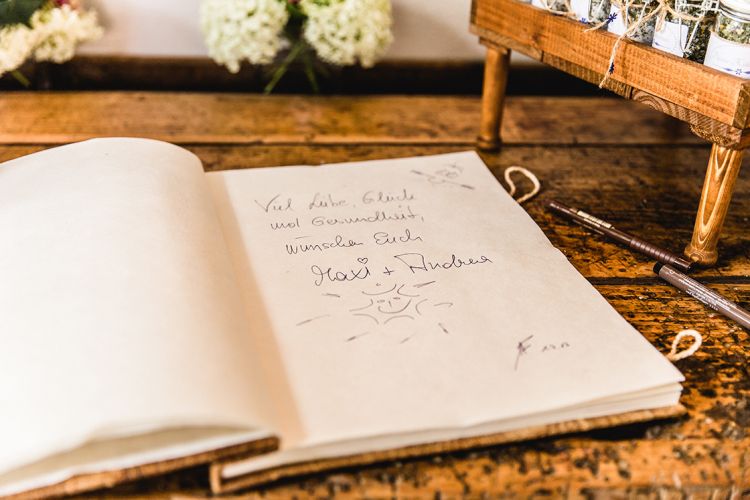 Viel Liebe, Glück
und Gesundheit,
wünschen Euch
Maxi + Andrea